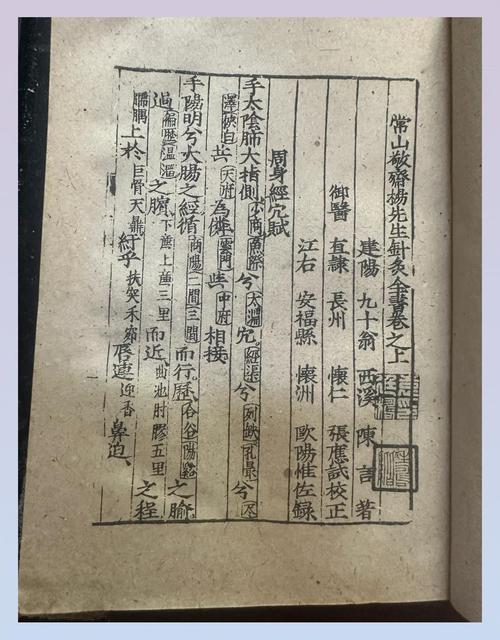 常山敬齋楊先生針灸全書卷之上
建陽 九十翁 西溪 陳言 著
御醫 直隸 長州 懷仁 張應試校正
江右 安福縣 懷洲 歐陽惟佐錄
周身經穴賦
手太陰肺大指側少商魚際兮太淵穴經渠兮列缺孔最兮尺
澤俠白共天府為鄰雲門共中府相接
手陽明兮大腸之經循商陽二間三間而行歷合谷陽谿之腧
過偏歷溫溜之濱下廉上廉三里而近曲池肘髎五里之程
臑髃上於巨骨天鼎紆乎扶突禾窌唇連迎香鼻迫